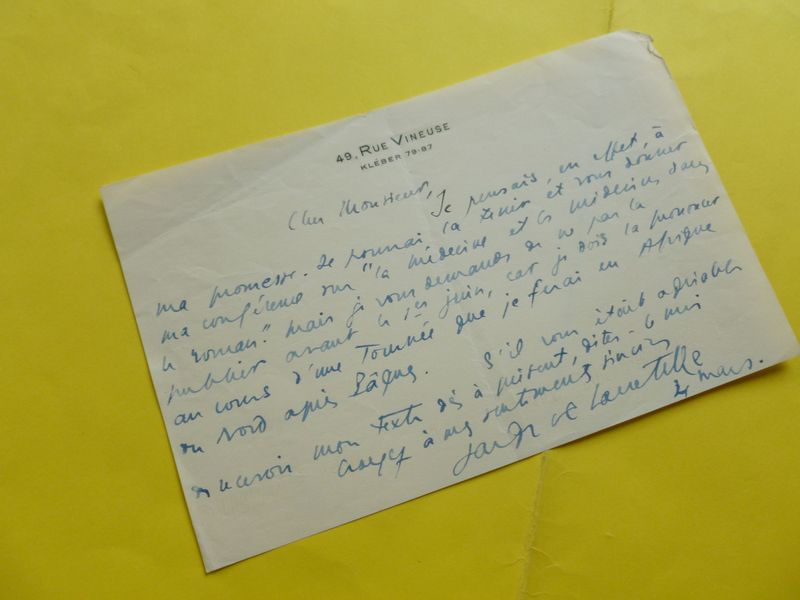 49, RUE VINEUSE
KLÉBER 79-87
Cher Monsieur,
Je pensais, en effet, à
ma promesse. Je pourrai la tenir et vous donner
ma conférence sur "la médecine et les médecins dans
le roman". Mais je vous demande de ne pas la
publier avant le 1er juin, car je dois la prononcer
au cours d'une Tournée que je ferai en Afrique
du Nord après Pâques. S'il vous était agréable
de recevoir mon texte dès à présent, dites-le moi
Croyez à mes sentiments sincères
Jacques de Lacretelle
4 mars.